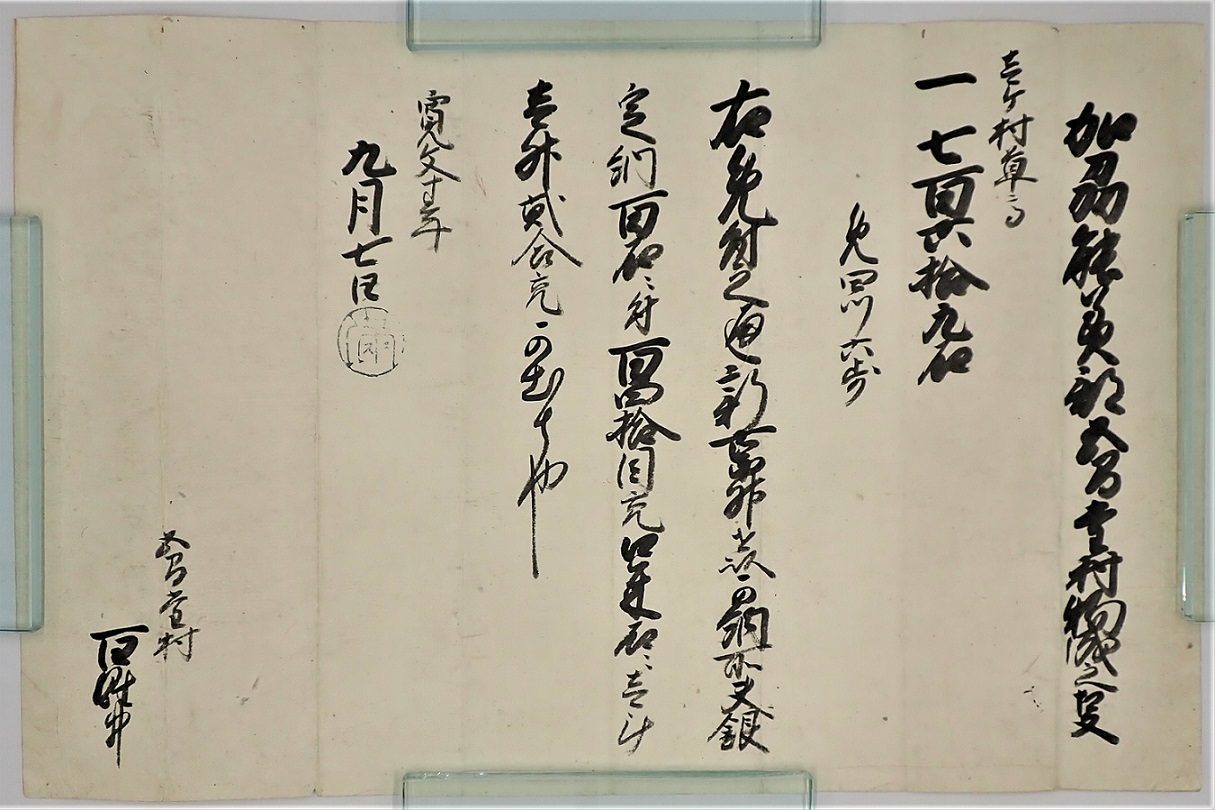 加州能美郡五間堂村物成之事
壱ヶ村草高
一 七百六拾九石
免四ツ六歩
右免付之通新京升を以可納所夫銀
定納百石ニ付百四拾目充口米石ニ壱斗
壱升弐合充可出者也
寛文十年
九月七日
五間堂村
百姓中